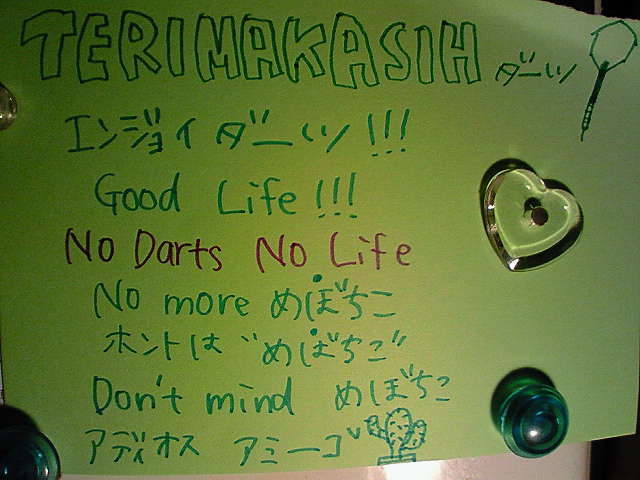 TERIMAKASIH ダーツ
エンジョイ ダーツ!!!
Good Life!!!
No Darts No Life
No more めぼちこ
ホントは"めぼちこ"
Don't mind めぼちこ
アディオス アミーゴ